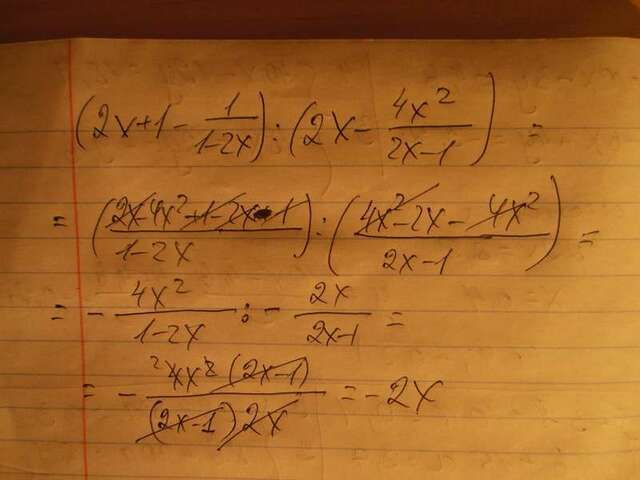 (2x+1 - 1/(1-2x)) : (2x - 4x²/(2x-1)) =
= ((2x-4x²+1-2x-1)/(1-2x)) : ((4x²-2x-4x²)/(2x-1)) =
= - 4x²/(1-2x) : - 2x/(2x-1) =
= - ²4x²(2x-1)/((2x-1)2x) = -2x